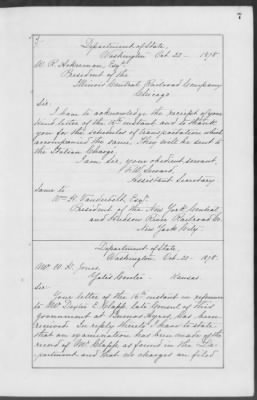 7
Department of State,
Washington Oct. 22 - 1878.
W. K. Ackerman, Esqr.
President of the
Illinois Central Railroad Company
Chicago
Sir:
I have to acknowledge the receipt of your
kind letter of the instant and to thank
you for the schedules of transportation which
accompanied the same. They will be sent to
the Italian Chargé.
I am, sir, your obedient servant,
F. W. Seward,
Assistant Secretary
Same to
Wm. H. Vanderbilt, Esqr.
President of the New York Central
and Hudson River Railroad Co.
New York City
Department of State,
Washington Oct. 22 - 1878.
Mr. W. H. Jones,
Centre - Kansas.
Sir:
Your letter of the 16th instant in reference
to Mr. Clapp late Consul of this
government at Buenos Ayres, has been
received. In reply thereto I have to state
that an examination has been made of the
record of Mr. Clapp as found in the De-
partment and that no charges are filed